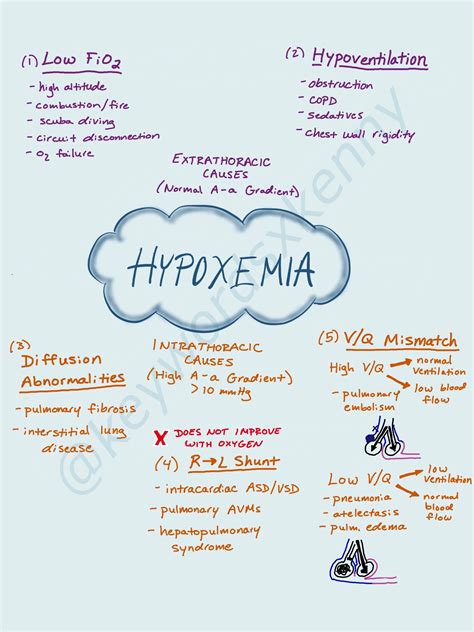 (1) Low FiO2
- high altitude
- combustion/fire
- scuba diving
- circuit disconnection
- O2 failure
(2) Hypoventilation
- obstruction
- COPD
- sedatives
- chest wall rigidity
EXTRATHORACIC
CAUSES
(Normal A-a Gradient)
HYPOXEMIA
(3)
Diffusion
Abnormalities
- pulmonary fibrosis
- interstitial lung
disease
INTRATHORACIC
CAUSES
(High A-a Gradient)
> 10 mmHg
X DOES NOT IMPROVE
WITH OXYGEN
(4) R→L Shunt
- intracardiac ASD/VSD
- pulmonary AVMs
- hepatopulmonary
syndrome
(5) V/Q Mismatch
High V/Q → normal
ventilation
→ low blood
flow
- pulmonary
embolism
Low V/Q → low
ventilation
→ normal
blood
flow
- pneumonia
- atelectasis
- pulm. edema
@keywordsxkenny